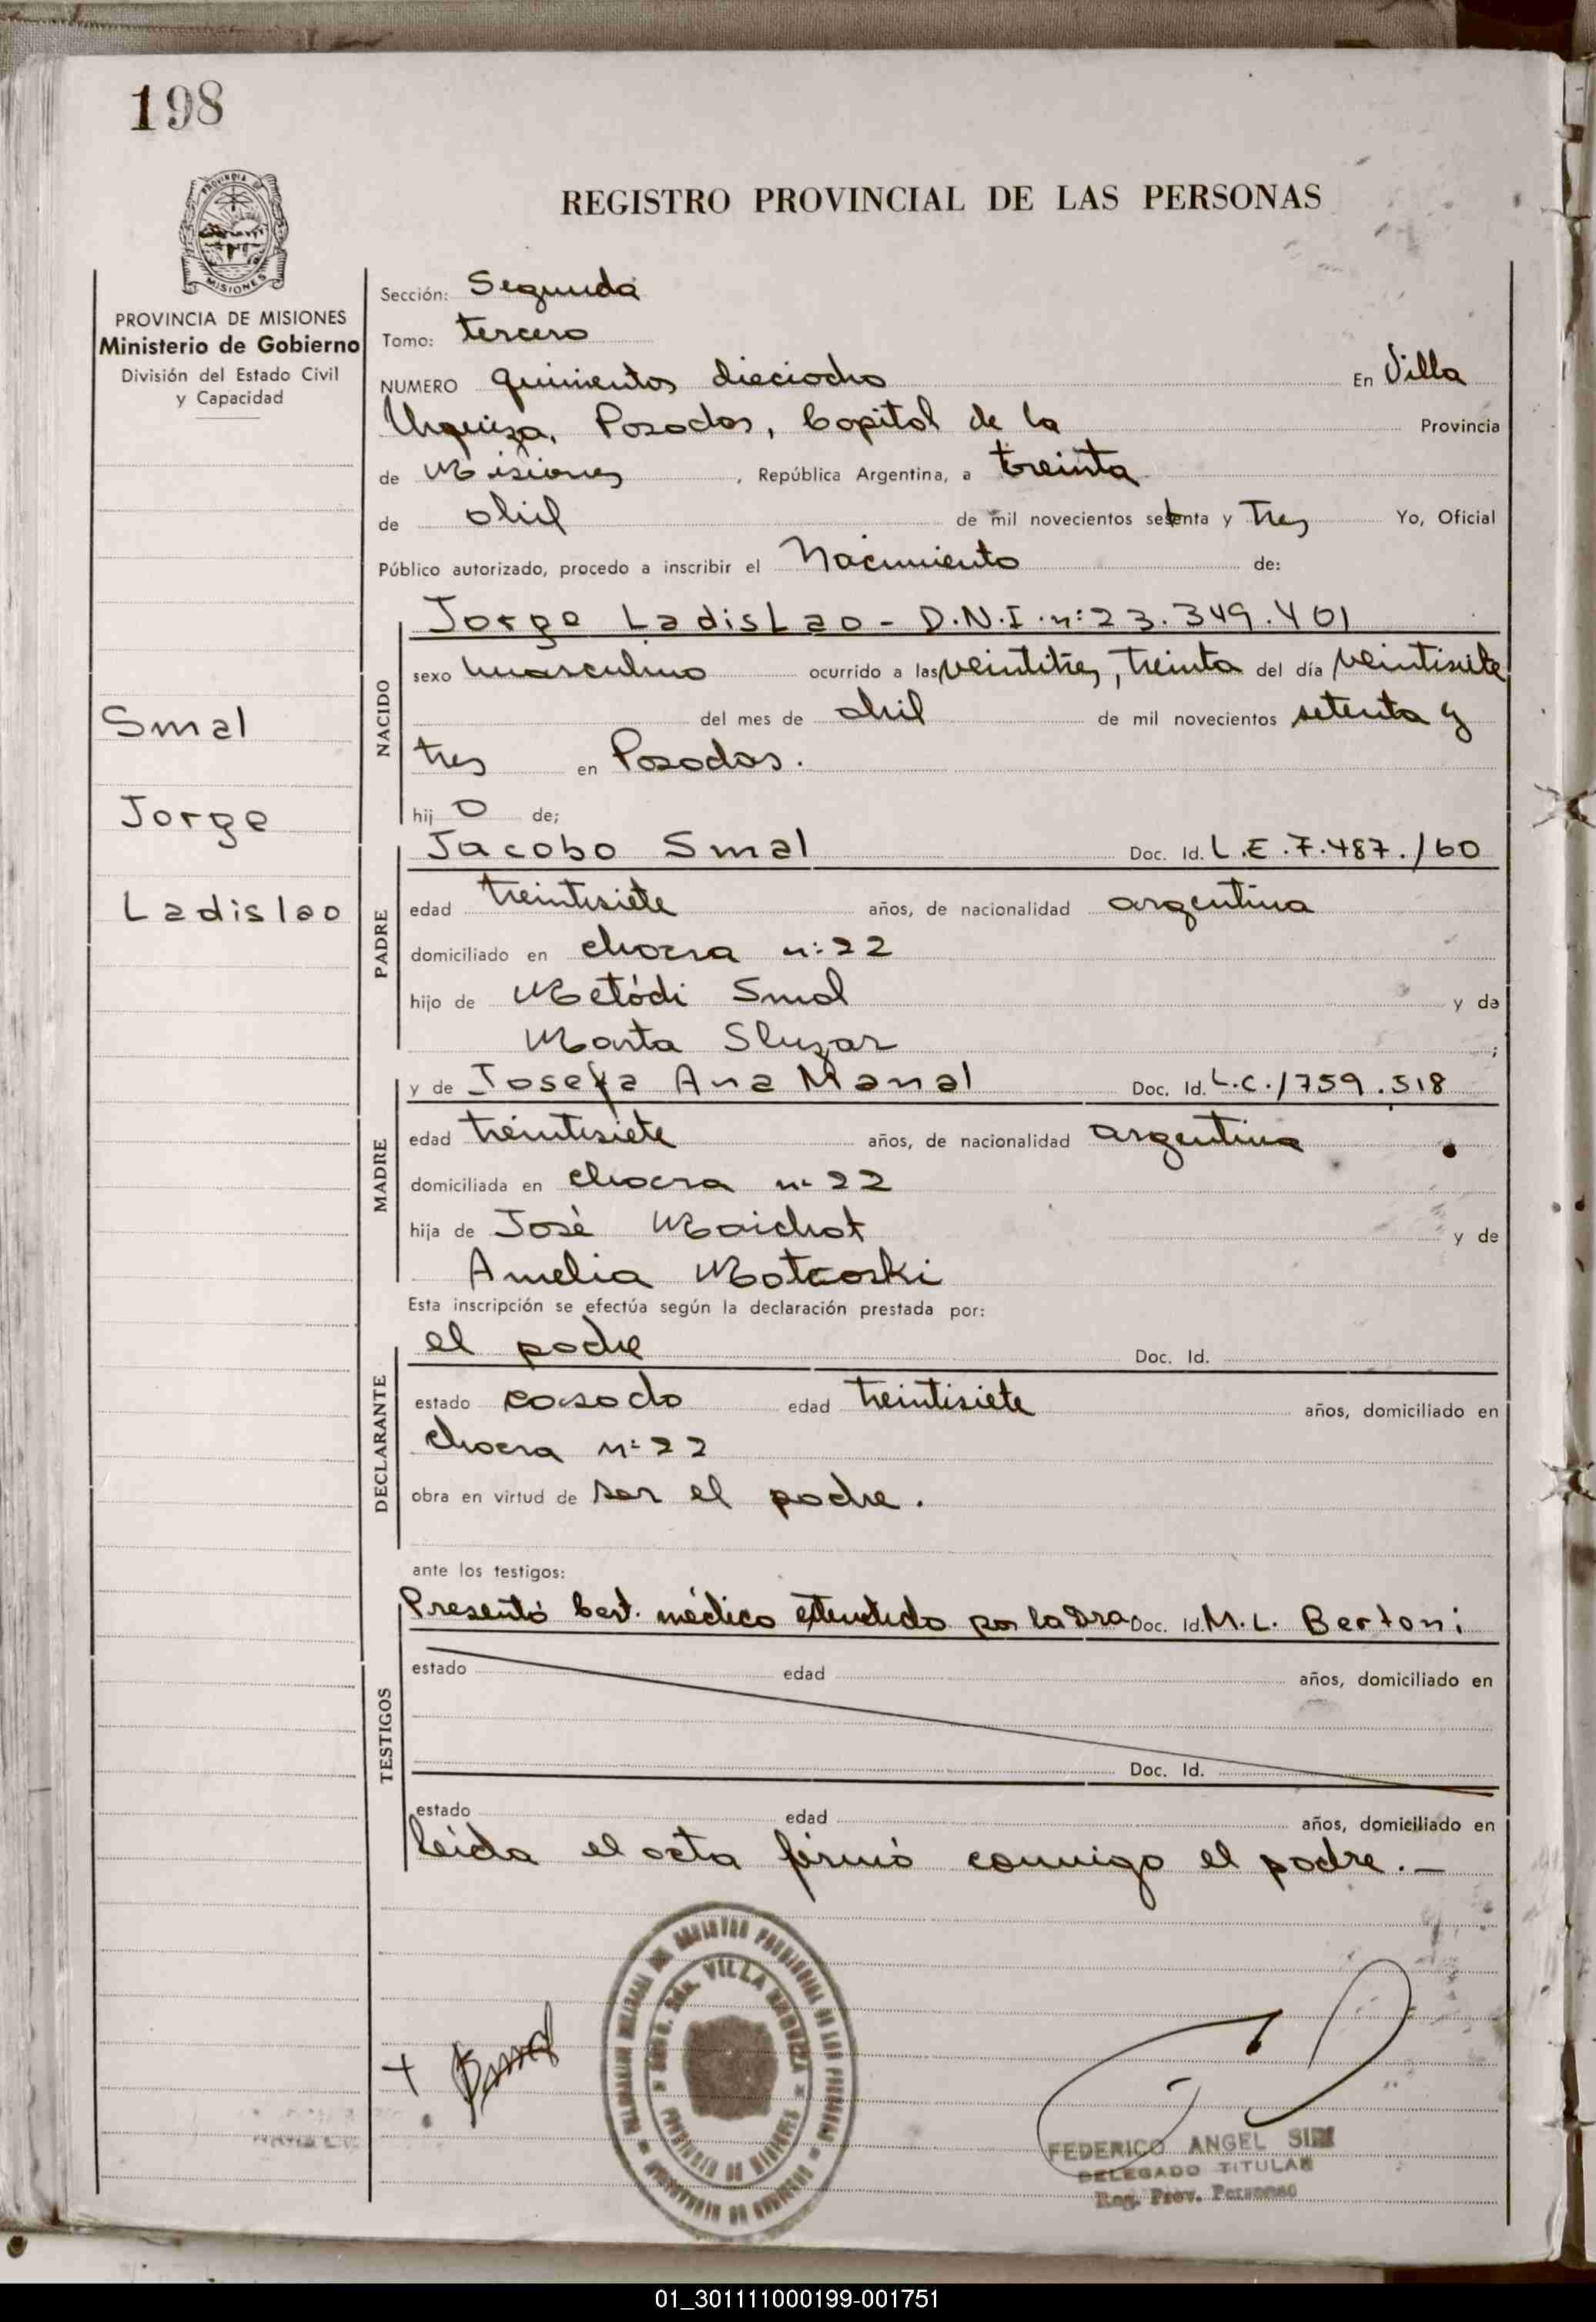 198
REGISTRO PROVINCIAL DE LAS PERSONAS
PROVINCIA DE
MISIONES
PROVINCIA DE MISIONES
Ministerio de Gobierno
División del Estado Civil
y Capacidad
Smal
Jorge
Ladislao
Sección: Segunda
Tomo: tercero
NUMERO quinientos dieciocho En Villa
Urquiza, Posadas, Capital de la Provincia
de Misiones, República Argentina, a treinta
de abril de mil novecientos setenta y tres Yo, Oficial
Público autorizado, procedo a inscribir el Nacimiento de:
NACIDO
Jorge Ladislao - D.N.I. n: 23.349.401
sexo masculino ocurrido a las veintitres, treinta del día veintisiete
del mes de abril de mil novecientos setenta y
tres en Posadas.
hij o de;
PADRE
Jacobo Smal Doc. Id. L.E. 7.487.160
edad treintisiete años, de nacionalidad argentina
domiciliado en chacra n: 22
hijo de Metódi Smal y de
Marta Sluzar ;
MADRE
y de Josefa Ana Manal Doc. Id. L.C. 1759.518
edad treintisiete años, de nacionalidad argentina
domiciliada en chacra n: 22
hija de José Maichat y de
Amelia
Esta inscripción se efectúa según la declaración prestada por:
DECLARANTE
el padre Doc. Id.
estado casado edad treintisiete años, domiciliado en
chacra n: 22
obra en virtud de ser el padre.
ante los testigos:
TESTIGOS
Presentó Cert. médico extendido por la Dra Doc. Id. M. L. Bertoni
estado edad años, domiciliado en
Doc. Id.
estado edad años, domiciliado en
leída el acta firmó conmigo el padre.-
Smal
VILLA URQUIZA
PROVINCIA DE MISIONES
FEDERICO ANGEL SIRI
DELEGADO TITULAR
Reg. Prov. Personas
01_301111000199-001751